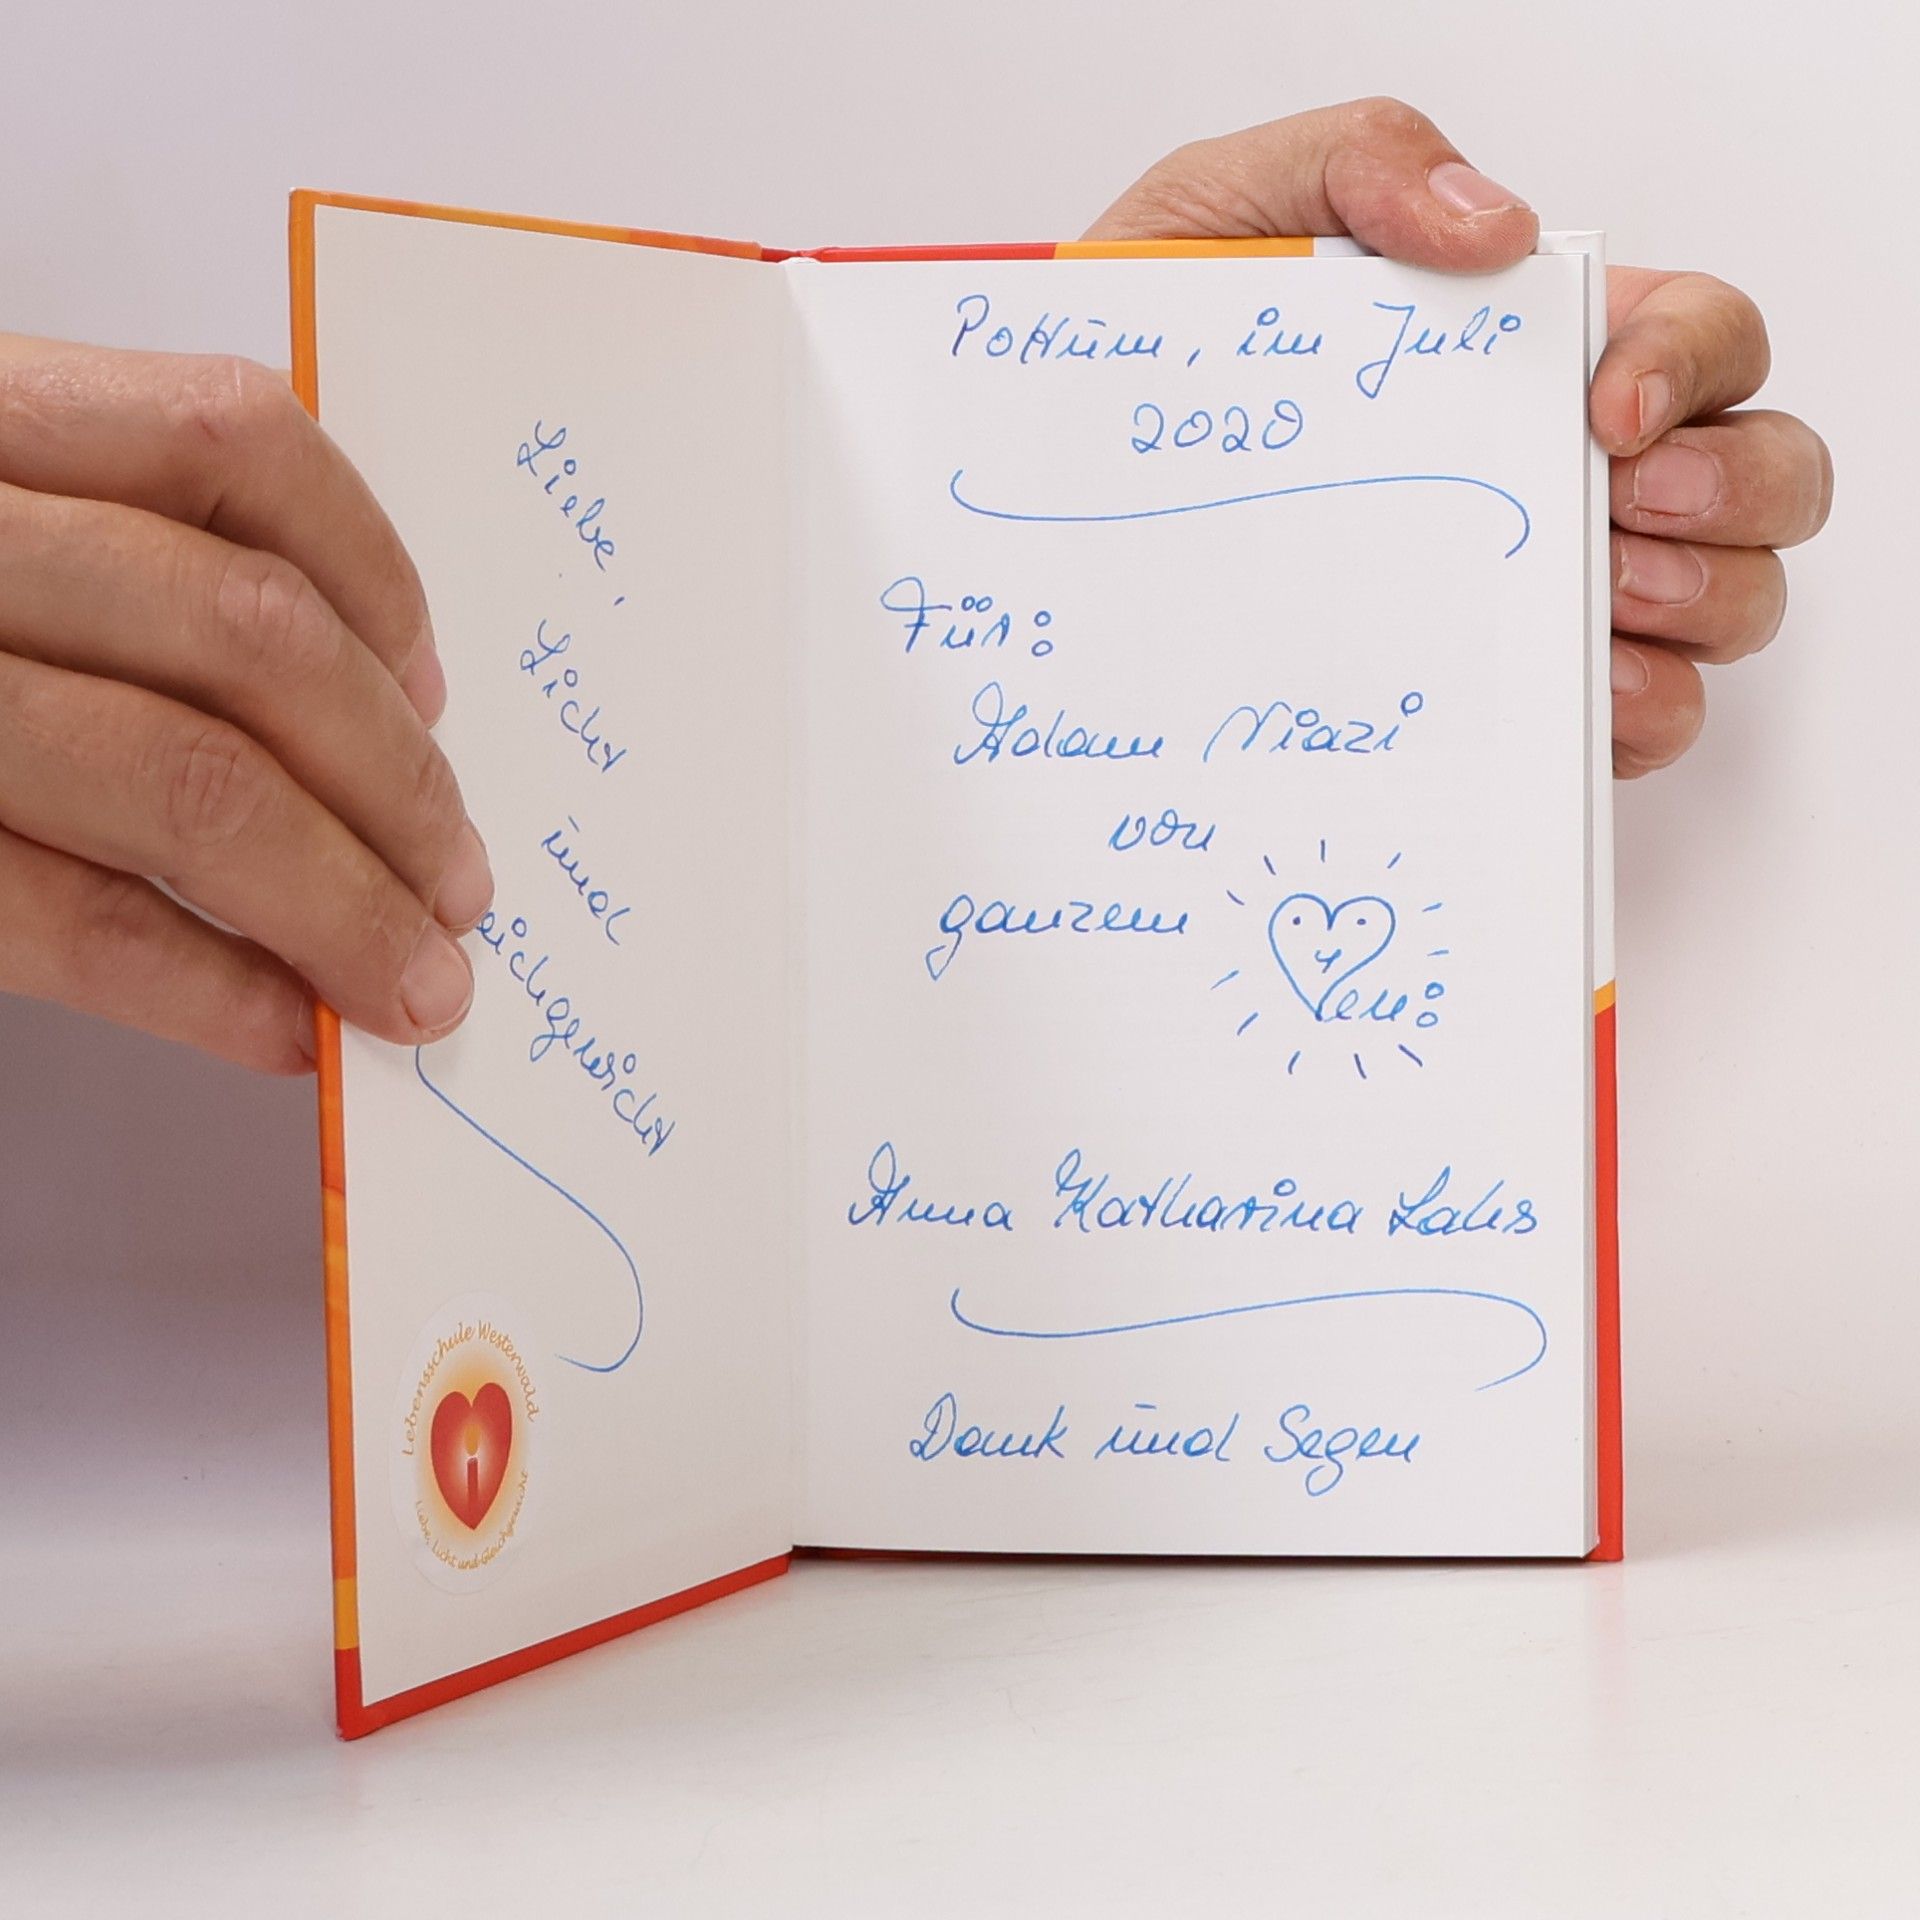 Liebe,
Licht
und
eichgewicht
Lebensschule Westerwald
Liebe, Licht und Gleichgewicht
Pottum, im Juli
2020
Für:
Adam Niazi
von
ganzem
en:
Anna Katharina Lahs
Dank und Segen